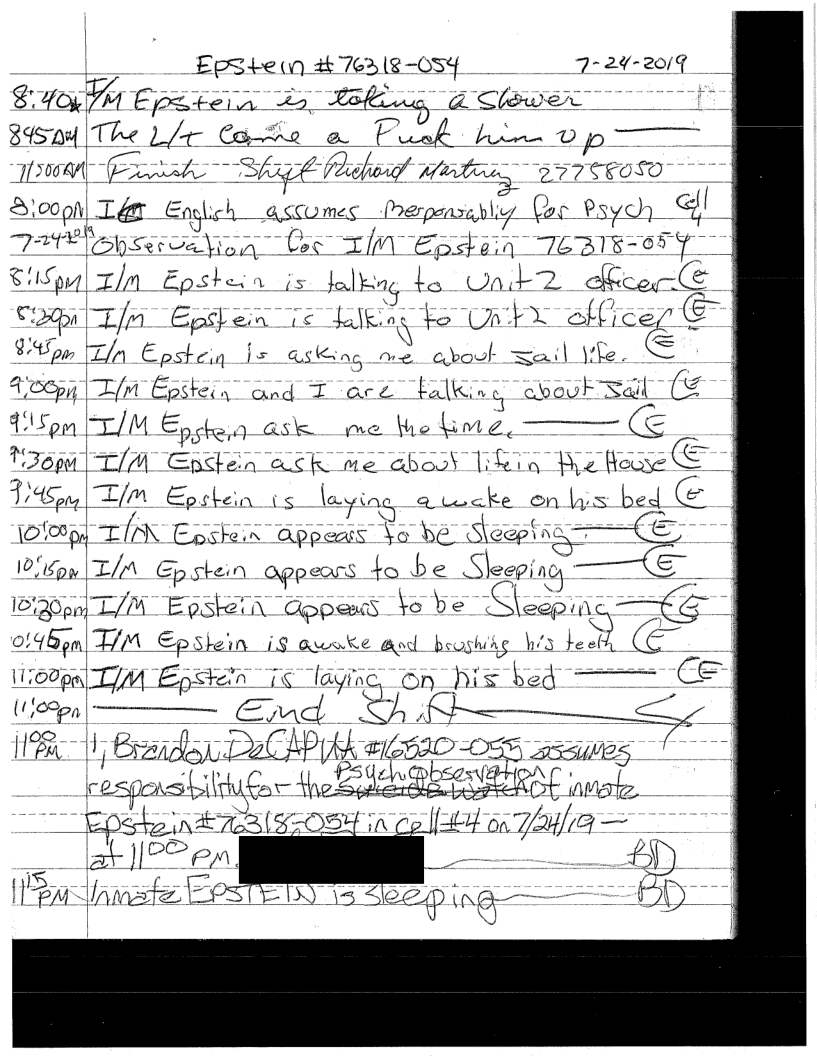 Epstein #76318-054 7-24-2019
8:40A I/M Epstein is taking a shower
845AM The L/t Came a Puck him up
11/:00AM Finish Shift Richard Martinez 27758050
8:00pm I/M English assumes responsabliy for Psych Cell 4
7-24-2019 Observation for I/M Epstein 76318-054
8:15pm I/m Epstein is talking to Unit 2 officer. CE
8:30pm I/m Epstein is talking to Unit 2 officer CE
8:45pm I/m Epstein is asking me about Jail life. CE
9:00pm I/M Epstein and I are talking about Jail CE
9:15pm I/M Epstein ask me the time. CE
9:30pm I/M Epstein ask me about life in the House CE
9:45pm I/m Epstein is laying awake on his bed CE
10:00pm I/M Epstein appears to be Sleeping. CE
10:15pm I/M Epstein appears to be Sleeping CE
10:30pm I/M Epstein appears to be Sleeping CE
10:45pm I/M Epstein is awake and brushing his teeth CE
11:00pm I/M Epstein is laying on his bed CE
11:00pm End Shift
1100 PM I, Brandon DeCAPUA #16520-055 assumes
Psych Observation
responsibility for the suicide watch of inmate
Epstein #76318-054 in cell #4 on 7/24/19
at 1100 PM. BD
1115 PM Inmate EPSTEIN is sleeping BD